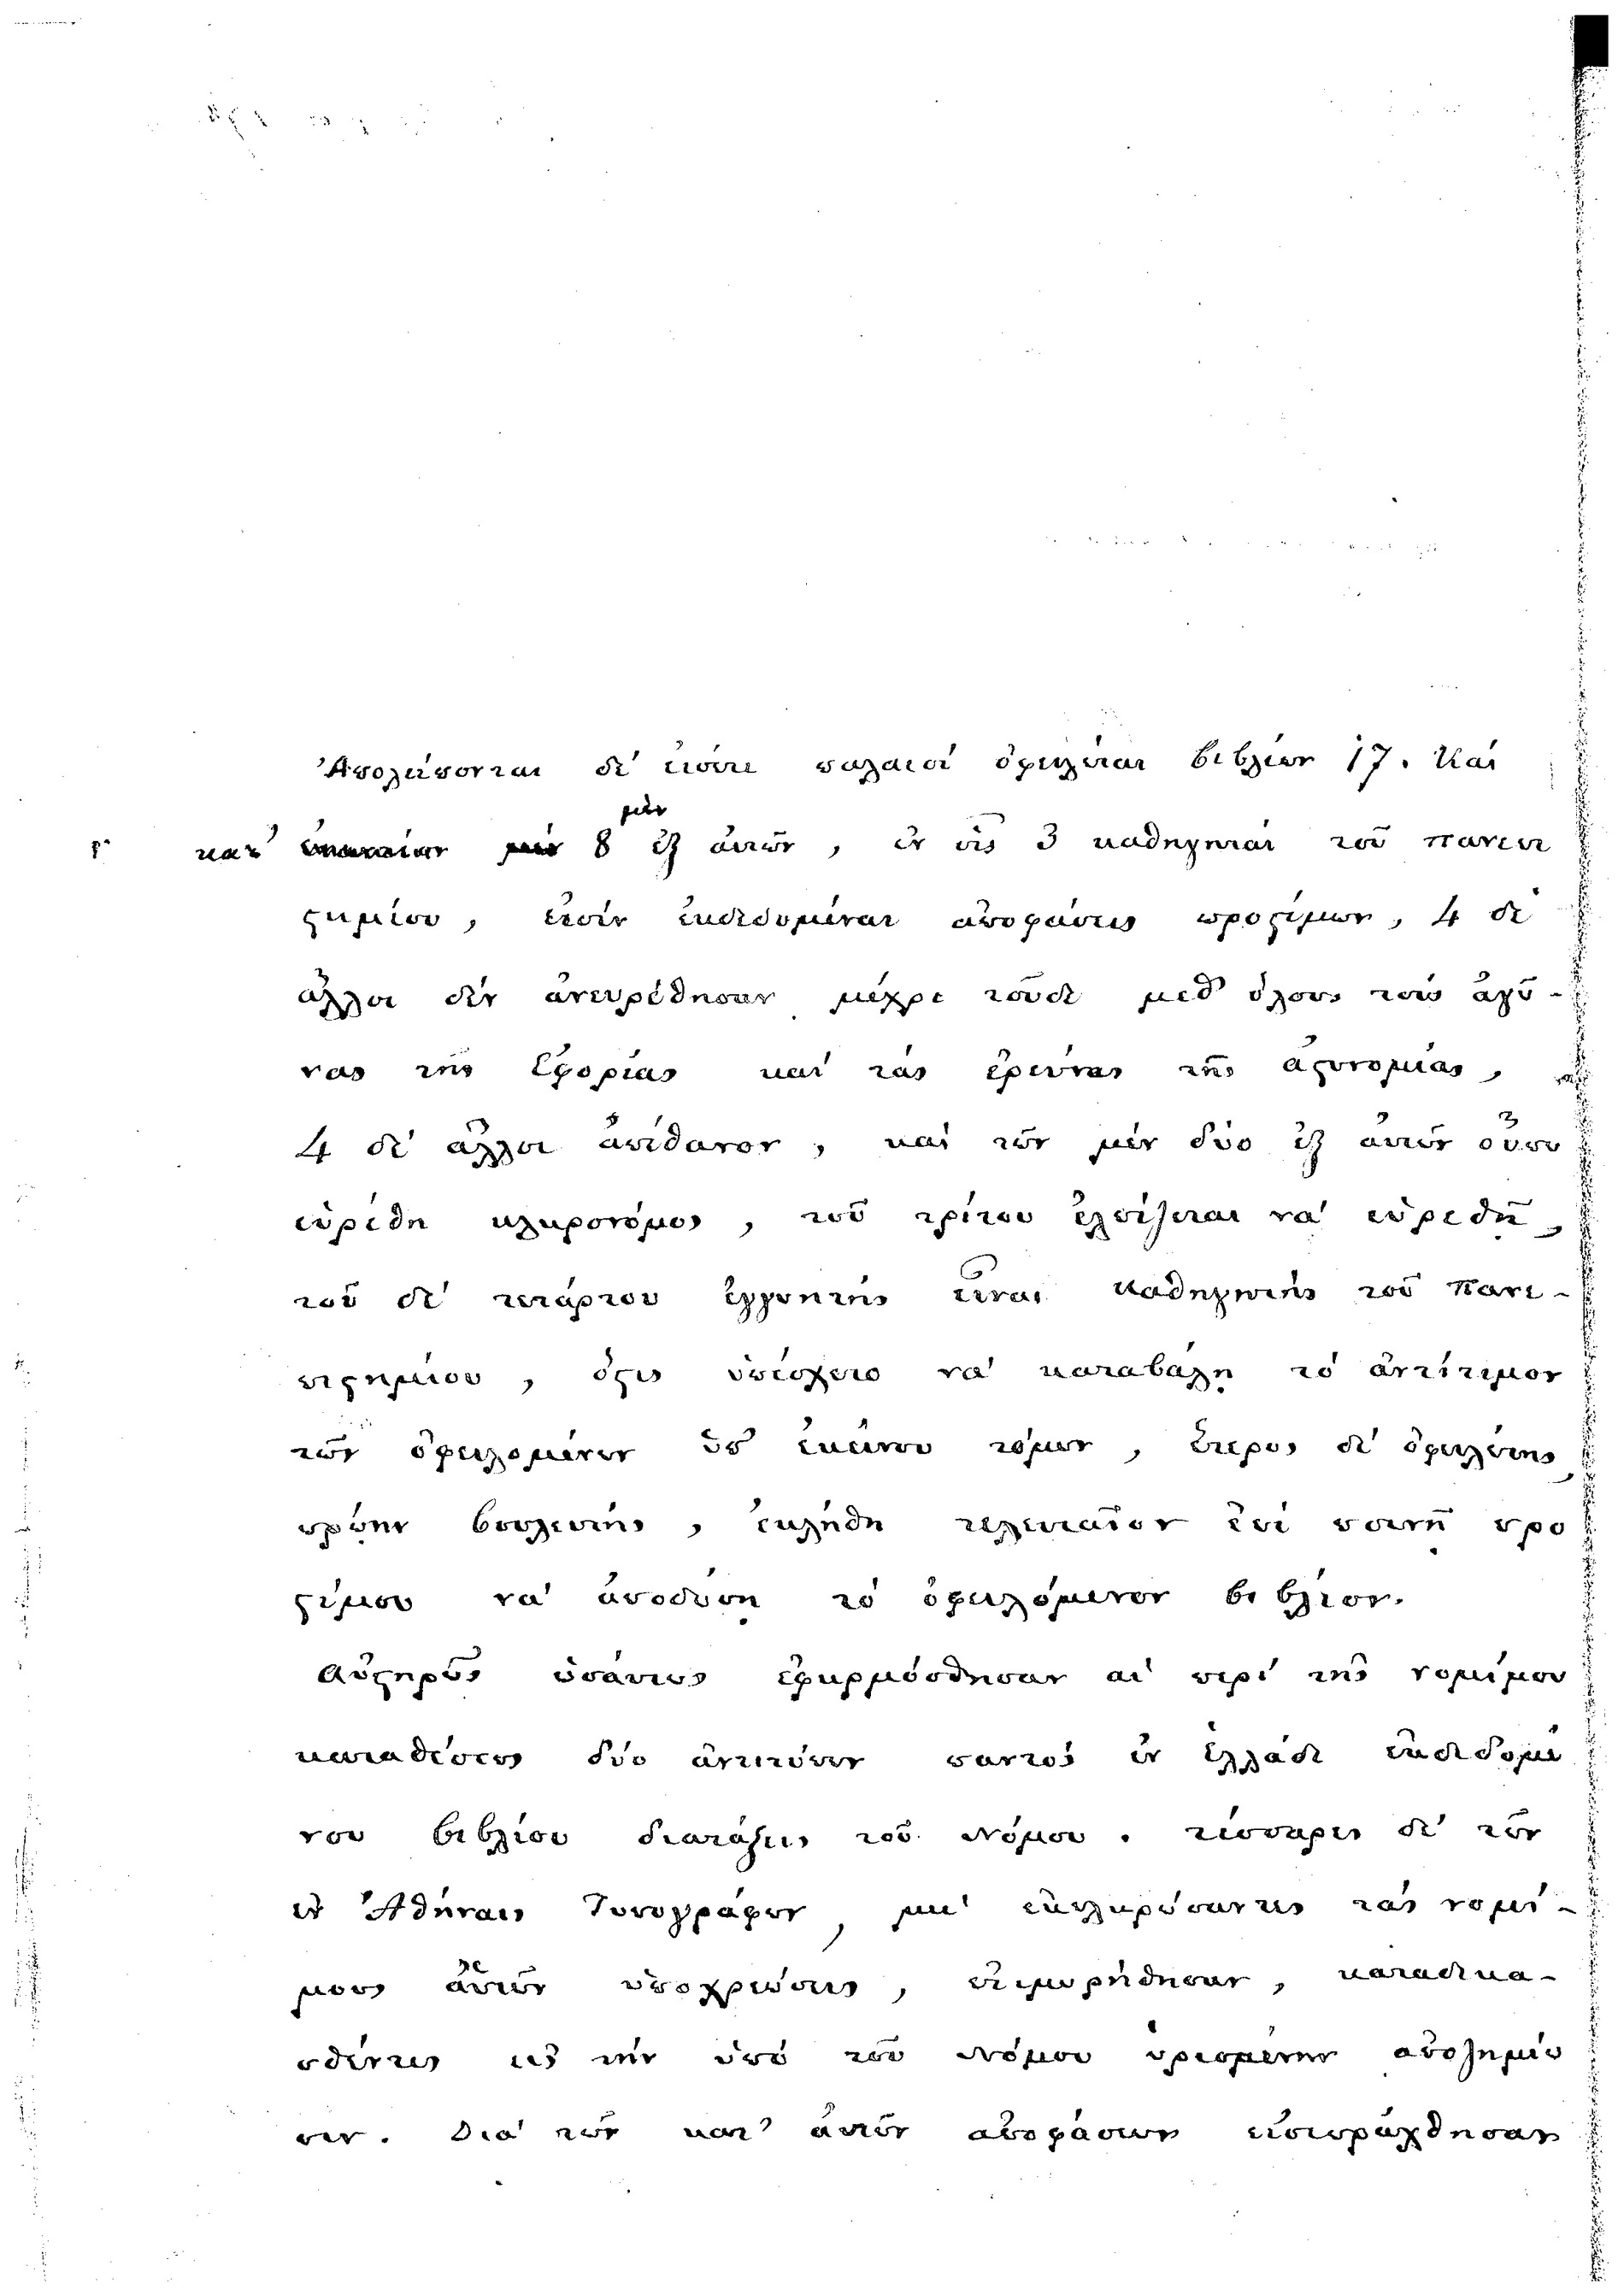 Ἀπολείπονται δὲ εἰσέτι παλαιοὶ ὀφειλέται βιβλίων 17. Καὶ
μὲν
κατ' 8 ἐξ αὐτῶν, ἐν οἷς 3 καθηγηταὶ τοῦ Πανεπι
στημίου, εἰσὶν ἐκδεδομέναι ἀποφάσεις προστίμων, 4 δὲ
ἄλλοι δὲν ἀνευρέθησαν μέχρι τοῦδε μεθ' ὅλους τοὺς ἀγῶ-
νας τῆς Ἐφορίας καὶ τὰς ἐρεύνας τῆς ἀστυνομίας,
4 δὲ ἄλλοι ἀπέθανον, καὶ τῶν μὲν δύο ἐξ αὐτῶν οὔπω
εὑρέθη κληρονόμος, τοῦ τρίτου ἐλπίζεται νὰ εὑρεθῇ,
τοῦ δὲ τετάρτου ἐγγυητὴς εἶναι Καθηγητὴς τοῦ Πανε-
πιστημίου, ὅστις ὑπέσχετο νὰ καταβάλῃ τὸ ἀντίτιμον
τῶν ὀφειλομένων ὑπ' ἐκείνου τόμων, ἕτερος δὲ ὀφειλέτης
πρώην βουλευτής, ἐκλήθη τελευταῖον ἐπὶ ποινῇ προ
στίμου νὰ ἀποδώσῃ τὸ ὀφειλόμενον βιβλίον.
Αὐστηρῶς ὡσαύτως ἐφηρμόσθησαν αἱ περὶ τῆς νομίμου
καταθέσεως δύο ἀντιτύπων παντὸς ἐν Ἑλλάδι ἐκδιδομέ
νου βιβλίου διατάξεις τοῦ Νόμου. τέσσαρες δὲ τῶν
ἐν Ἀθήναις Τυπογράφων, μὴ ἐκπληρώσαντες τὰς νομί-
μους αὐτῶν ὑποχρεώσεις, ἐτιμωρήθησαν, καταδικα-
σθέντες εἰς τὴν ὑπὸ τοῦ Νόμου ὡρισμένην ἀποζημίω
σιν. Διὰ τῶν κατ' αὐτῶν ἀποφάσεων εἰσεπράχθησαν